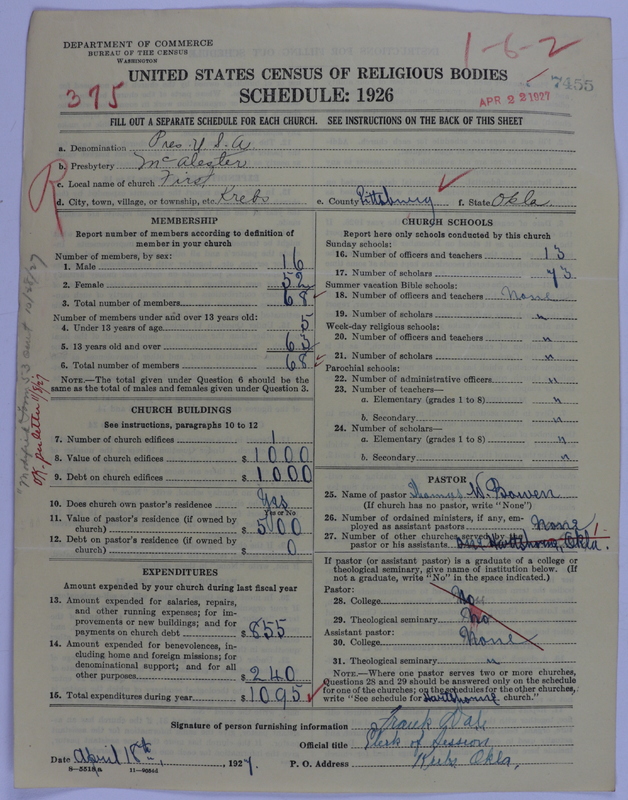 DEPARTMENT OF COMMERCE
BUREAU OF THE CENSUS
WASHINGTON
1-6-2
7455
375
APR 22 1927
UNITED STATES CENSUS OF RELIGIOUS BODIES
SCHEDULE: 1926
FILL OUT A SEPARATE SCHEDULE FOR EACH CHURCH. SEE INSTRUCTIONS ON THE BACK OF THIS SHEET
R
a. Denomination Pres. U.S.A.
b. Presbytery McAlester
c. Local name of church First
d. City, town, village, or township, etc. Krebs e. County Pittsburg f. State Okla
MEMBERSHIP
Report number of members according to definition of
member in your church
Number of members, by sex:
1. Male 16
2. Female 52
3. Total number of members 68
Number of members under and over 13 years old:
4. Under 13 years of age 5
5. 13 years old and over 63
6. Total number of members 68
NOTE.—The total given under Question 6 should be the
same as the total of males and females given under Question 3.
CHURCH BUILDINGS
See instructions, paragraphs 10 to 12
7. Number of church edifices 1
8. Value of church edifices $ 1000
9. Debt on church edifices $ 1000
10. Does church own pastor's residence Yes
Yes or No
11. Value of pastor's residence (if owned by
church) $ 500
12. Debt on pastor's residence (if owned by
church) $ 0
EXPENDITURES
Amount expended by your church during last fiscal year
13. Amount expended for salaries, repairs,
and other running expenses; for im-
provements or new buildings; and for
payments on church debt $ 855
14. Amount expended for benevolences, in-
cluding home and foreign missions; for
denominational support; and for all
other purposes $ 240
15. Total expenditures during year $ 1095
CHURCH SCHOOLS
Report here only schools conducted by this church
Sunday schools:
16. Number of officers and teachers 13
17. Number of scholars 73
Summer vacation Bible schools:
18. Number of officers and teachers None
19. Number of scholars "
Week-day religious schools:
20. Number of officers and teachers "
21. Number of scholars "
Parochial schools:
22. Number of administrative officers "
23. Number of teachers—
a. Elementary (grades 1 to 8) "
b. Secondary "
24. Number of scholars—
a. Elementary (grades 1 to 8) "
b. Secondary "
PASTOR
25. Name of pastor W. Bowen
(If church has no pastor, write "None")
26. Number of ordained ministers, if any, em-
ployed as assistant pastors None
27. Number of other churches served by 1
pastor or his assistants Hartshorne, Okla.
If pastor (or assistant pastor) is a graduate of a college or
theological seminary, give name of institution below. (If
not a graduate, write "No" in the space indicated.)
Pastor:
28. College No
29. Theological seminary No
Assistant pastor:
30. College None
31. Theological seminary "
NOTE.—Where one pastor serves two or more churches,
Questions 28 and 29 should be answered only on the schedule
for one of the churches; on the schedules for the other churches,
write "See schedule for Hartshorne church."
Signature of person furnishing information Frank
Official title Clerk of Session
Date April 18th, 1927. P. O. Address Krebs Okla,
8—5518a